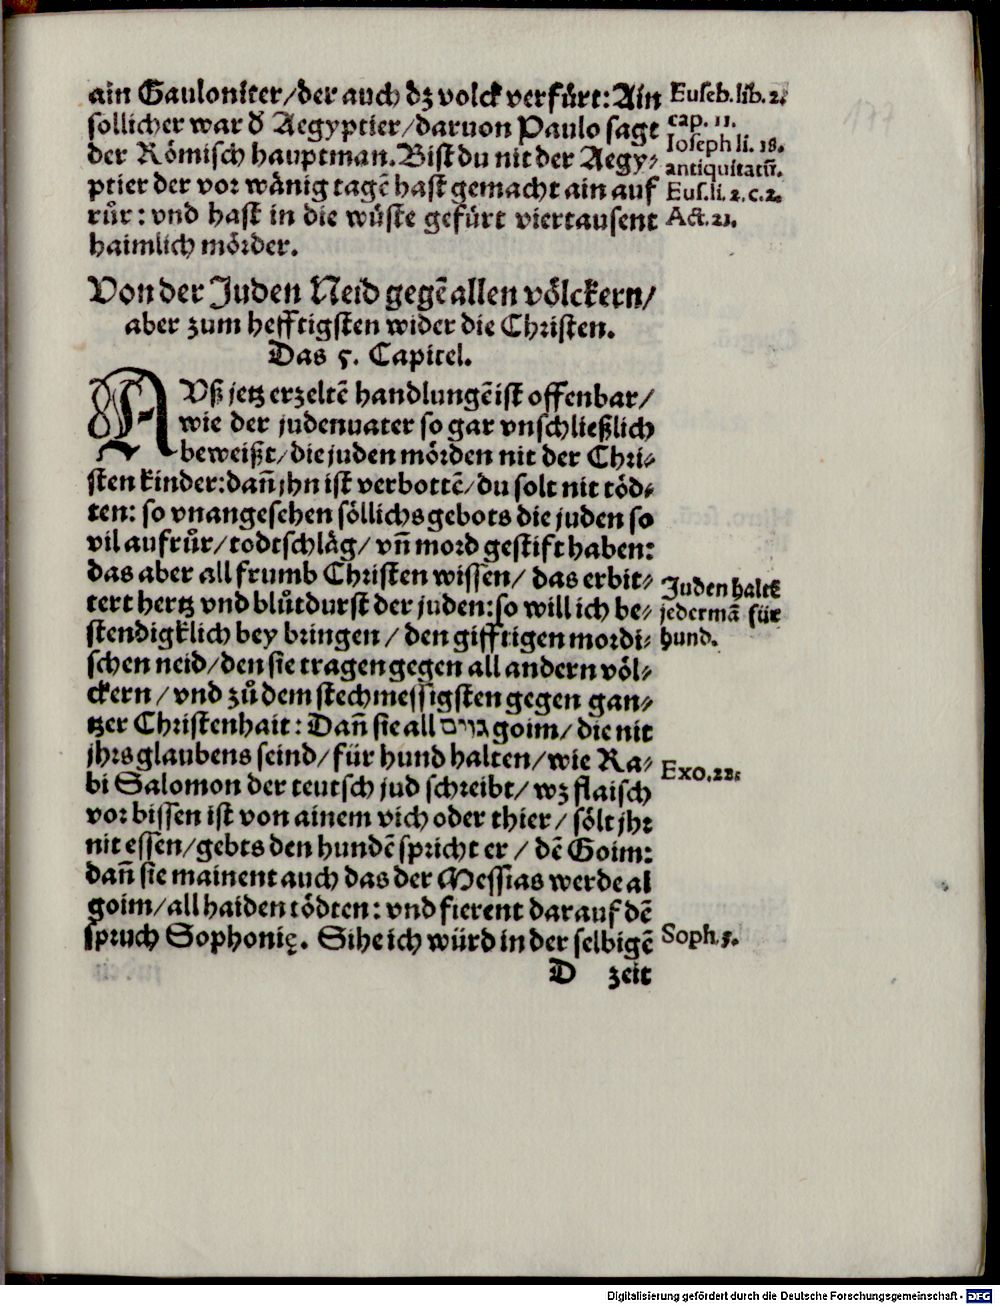 177
ain Gauloniter/der auch dz volck verfürt: Ain
sollicher war d̕ Aegyptier/daruon Paulo sagt
der Römisch hauptman. Bist du nit der Aegy⸗
ptier der vor wänig tagē hast gemacht ain auf
růr: vnd hast in die wüste gefürt viertausent
haimlich mörder.
Euseb. lib. 2.
cap. 11.
Ioseph li. 18.
antiquitatū.
Eus. li. 2. c. 2.
Act. 21.
Von der Juden Neid gegē allen völckern/
aber zum hefftigsten wider die Christen.
Das 5. Capitel.
AVß jetz erzeltē handlungē ist offenbar/
wie der judenuater so gar vnschließlich
beweißt/die juden mörden nit der Chri⸗
sten kinder: dañ jhn ist verbottē/du solt nit töd⸗
ten: so vnangesehen söllichs gebots die juden so
vil aufrůr/todtschläg/vñ mord gestift haben:
das aber all frumb Christen wissen/das erbit⸗
tert hertz vnd blůtdurst der juden: so will ich be⸗
stendigklich bey bringen/den gifftigen mordi⸗
schen neid/den sie tragen gegen all andern völ⸗
ckern/vnd zů dem stechmessigsten gegen gan⸗
tzer Christenhait: Dañ sie all גוים goim/die nit
jhrs glaubens seind/für hund halten/wie Ra⸗
bi Salomon der teutsch jud schreibt/wz flaisch
vor bissen ist von ainem vich oder thier/sölt jhr
nit essen/gebts den hundē spricht er/dē Goim:
dañ sie mainent auch das der Messias werde al
goim/all haiden tödten: vnd fierent darauf dē
spruch Sophonię. Sihe ich würd in der selbigē
Juden haltē
jedermā für
hund.
Exo. 22.
Soph. 3.
D zeit
Digitalisierung gefördert durch die Deutsche Forschungsgemeinschaft - DFG